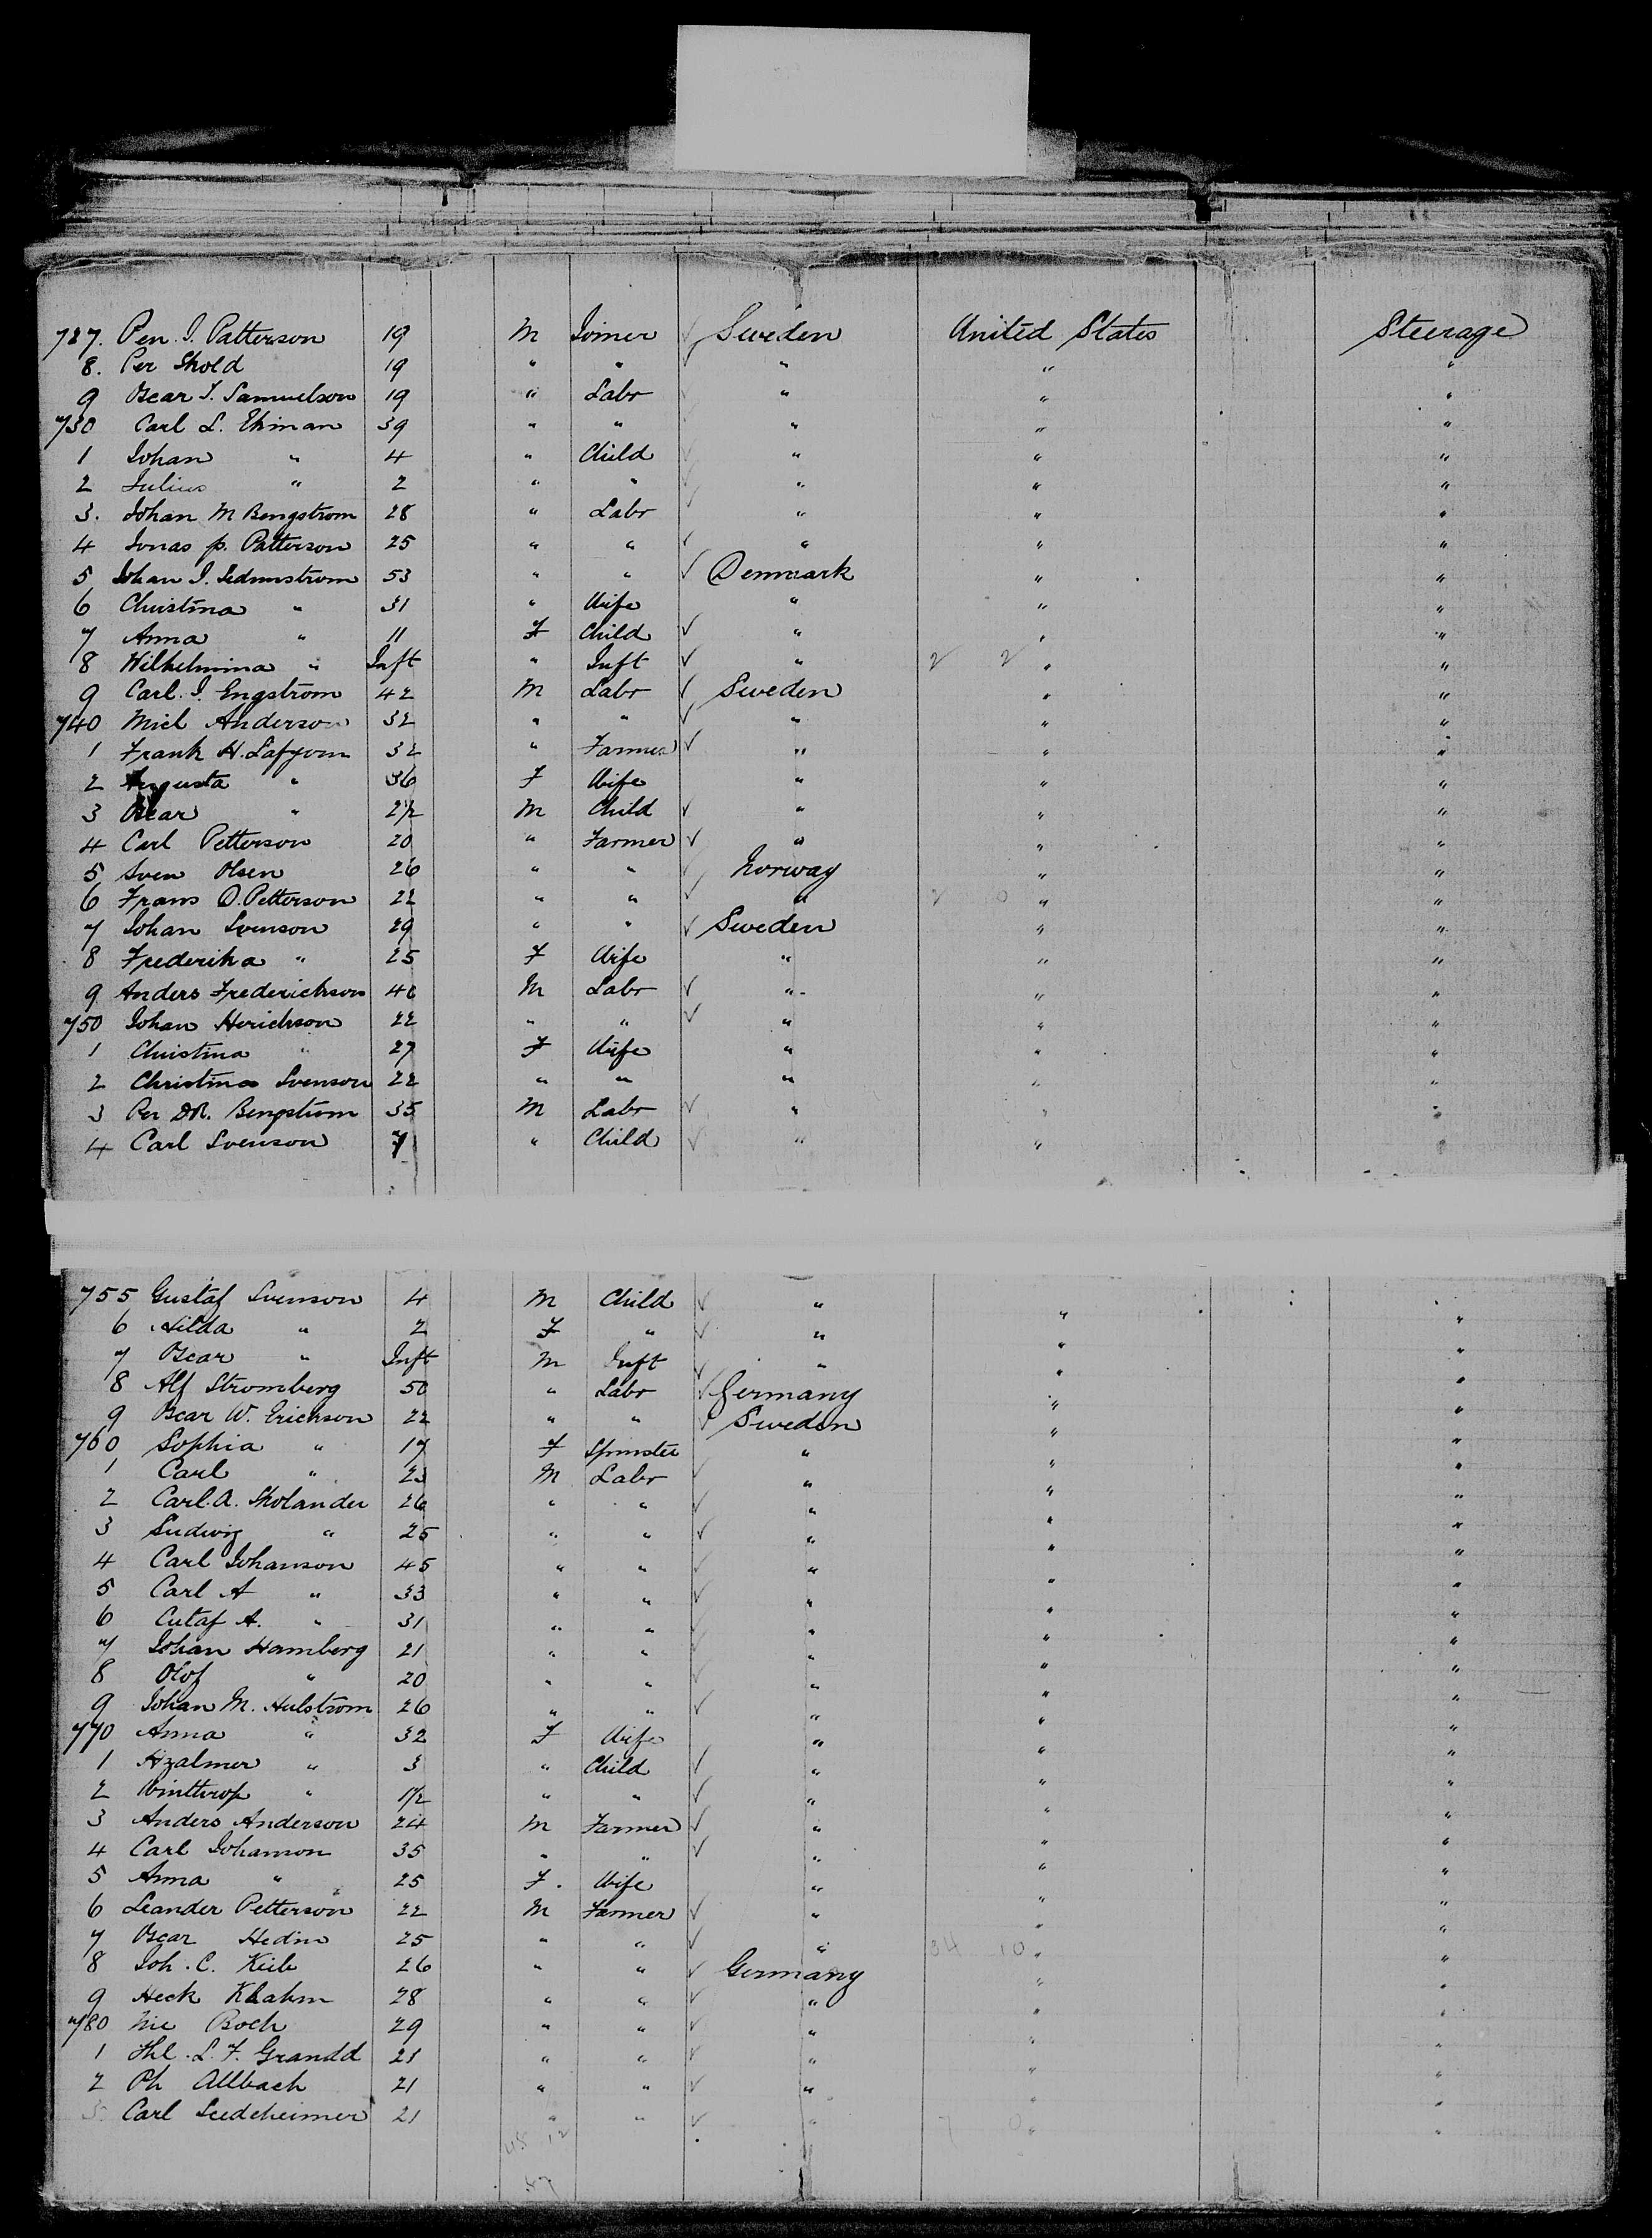 727. Pen. J. Patterson 19 M Joiner ✓ Sweden United States Steerage
8. Per Skold 19 " " " " "
9 Oscar J. Samuelson 19 " Labr " " "
730 Carl L. Ehman 39 " " " " "
1 Johan " 4 " Child " " "
2 Julius " 2 " " " " "
3. Johan M Bengstrom 28 " Labr " " "
4 Jonas p. Patterson 25 " " ✓ " " "
5 Johan J. 53 " " ✓ Denmark " "
6 Christina " 31 " Wife " " "
7 Anna " 11 F Child ✓ " " "
8 Wilhelmina " Inft " Inft ✓ " 2 2 " "
9 Carl. J. Engstrom 42 M Labr ✓ Sweden " "
740 Miel Anderson 32 " " ✓ " " "
1 Frank H. 32 " Farmer ✓ " " "
2 Augusta " 36 F Wife " " "
3 Oscar " 2½ M Child ✓ " " "
4 Carl Petterson 20 " Farmer ✓ " " "
5 Sven Olsen 26 " " ✓ Norway " "
6 Frans O. Petterson 22 " " ✓ " 2 0 " "
7 Johan Svenson 29 " " ✓ Sweden " "
8 Frederika " 25 F Wife " " "
9 Anders Frederickson 46 M Labr ✓ " " "
750 Johan Herickson 22 " " ✓ " " "
1 Christina " 27 F Wife " " "
2 Christina Svenson 22 " " " " "
3 Per Bengstrom 35 M Labr ✓ " " "
4 Carl Svenson 7 " Child ✓ " " "
755 Gustaf Svenson 4 M Child ✓ " " "
6 Hilda " 2 F " ✓ " " "
7 Oscar " Inft M Inft ✓ " " "
8 Alf Stromberg 50 " Labr ✓ Germany " "
9 Oscar W. Erickson 22 " " ✓ Sweden " "
760 Sophia " 17 F Spinster " " "
1 Carl " 23 M Labr ✓ " " "
2 Carl. A. Skolander 26 " " ✓ " " "
3 Ludwig " 25 " " ✓ " " "
4 Carl Johanson 45 " " ✓ " " "
5 Carl A " 33 " " ✓ " " "
6 Cutaf A. " 31 " " ✓ " " "
7 Johan Hamberg 21 " " ✓ " " "
8 Olof " 20 " " ✓ " " "
9 Johan M. Hulstrom 26 " " ✓ " " "
770 Anna " 32 F Wife " " "
1 Hzalmer " 3 " Child ✓ " " "
2 Winthrop " 1½ " " ✓ " " "
3 Anders Anderson 24 M Farmer ✓ " " "
4 Carl Johanson 35 " " ✓ " " "
5 Anna " 25 F. Wife " " "
6 Leander Petterson 22 M Farmer ✓ " " "
7 Oscar Hedin 25 " " ✓ " 34 10 " "
8 Joh. C. Keib 26 " " ✓ Germany " "
9 Heck Klahm 28 " " ✓ " " "
780 Nic Boch 29 " " ✓ " " "
1 Thl. L. F. Grandd 21 " " ✓ " " "
2 Ph Allbach 21 " " ✓ " " "
3. Carl Seedeheimer 21 " " ✓ " 7 0 " "
45 12
57